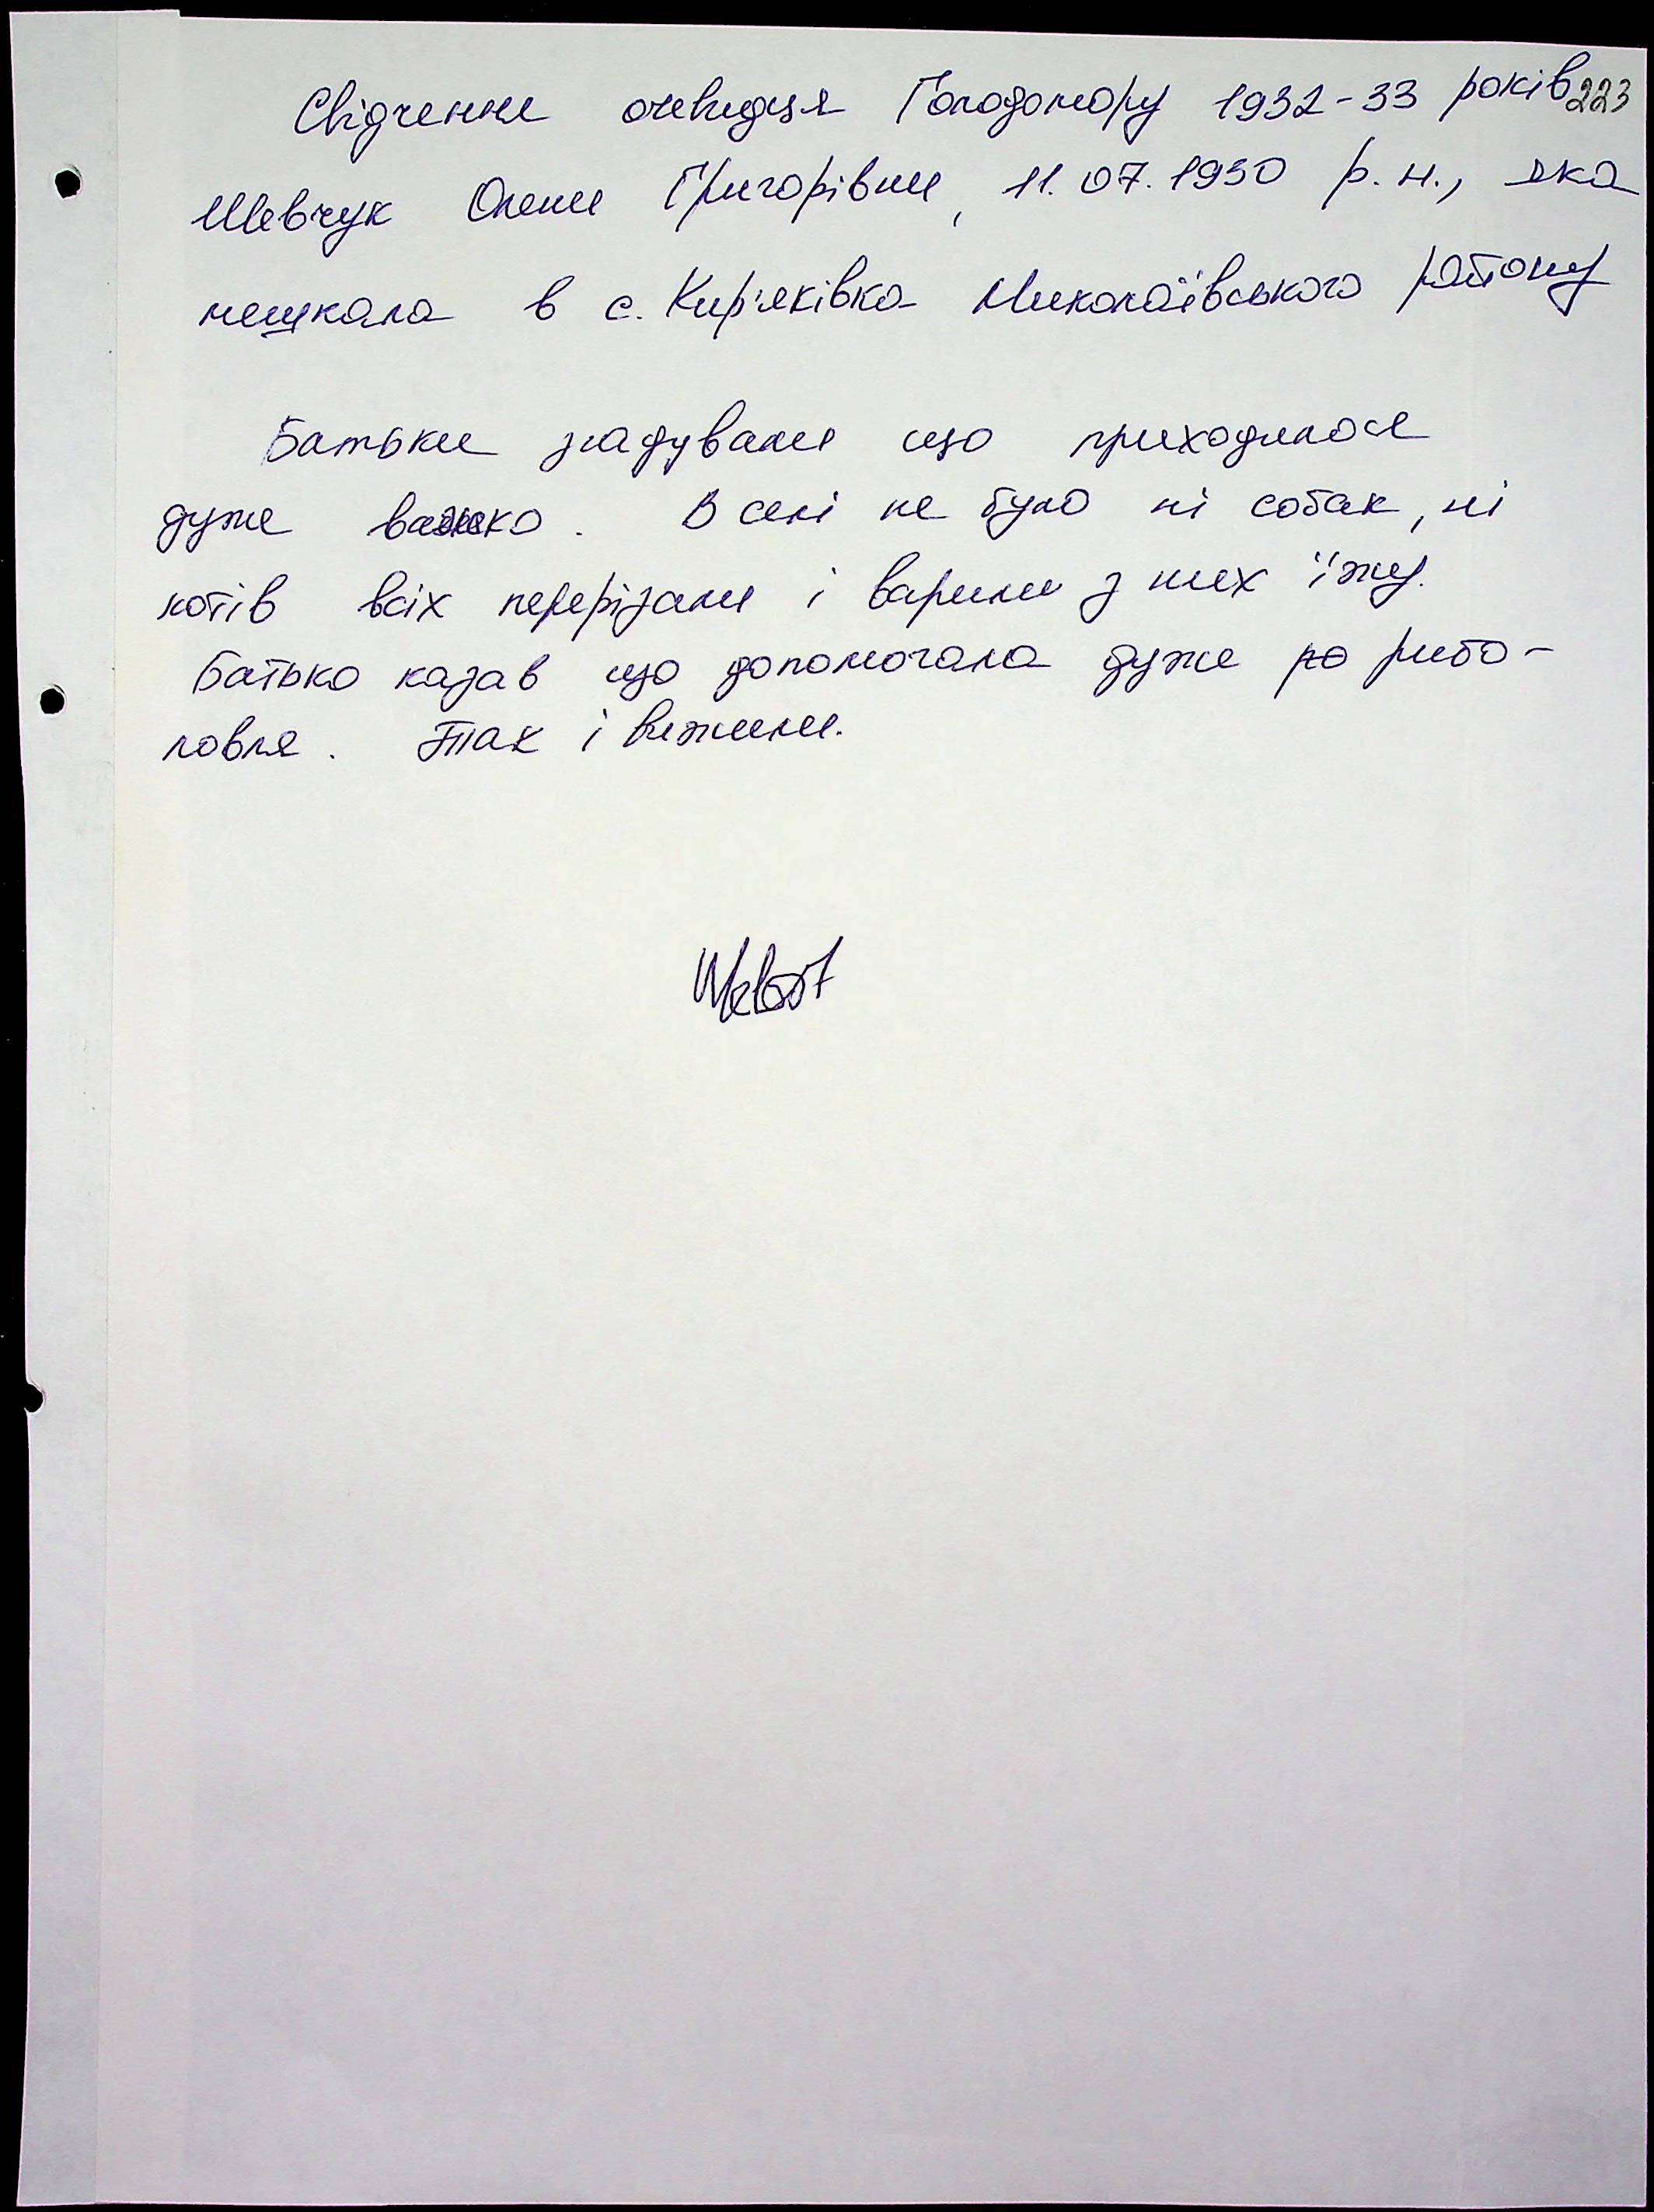 Свідчення очевидця Голодомору 1932-33 років 223
Шевчук Олени Григорівни, 11.07.1930 р.н., яка
мешкала в с. Кир'яківка Миколаївського району
Батьки згадували що приходилося
дуже важко. В селі не було ні собак, ні
котів всіх перерізали і варили з них їжу.
Батько казав що допомогала дуже ро рибо-
ловля. Так і вижили.